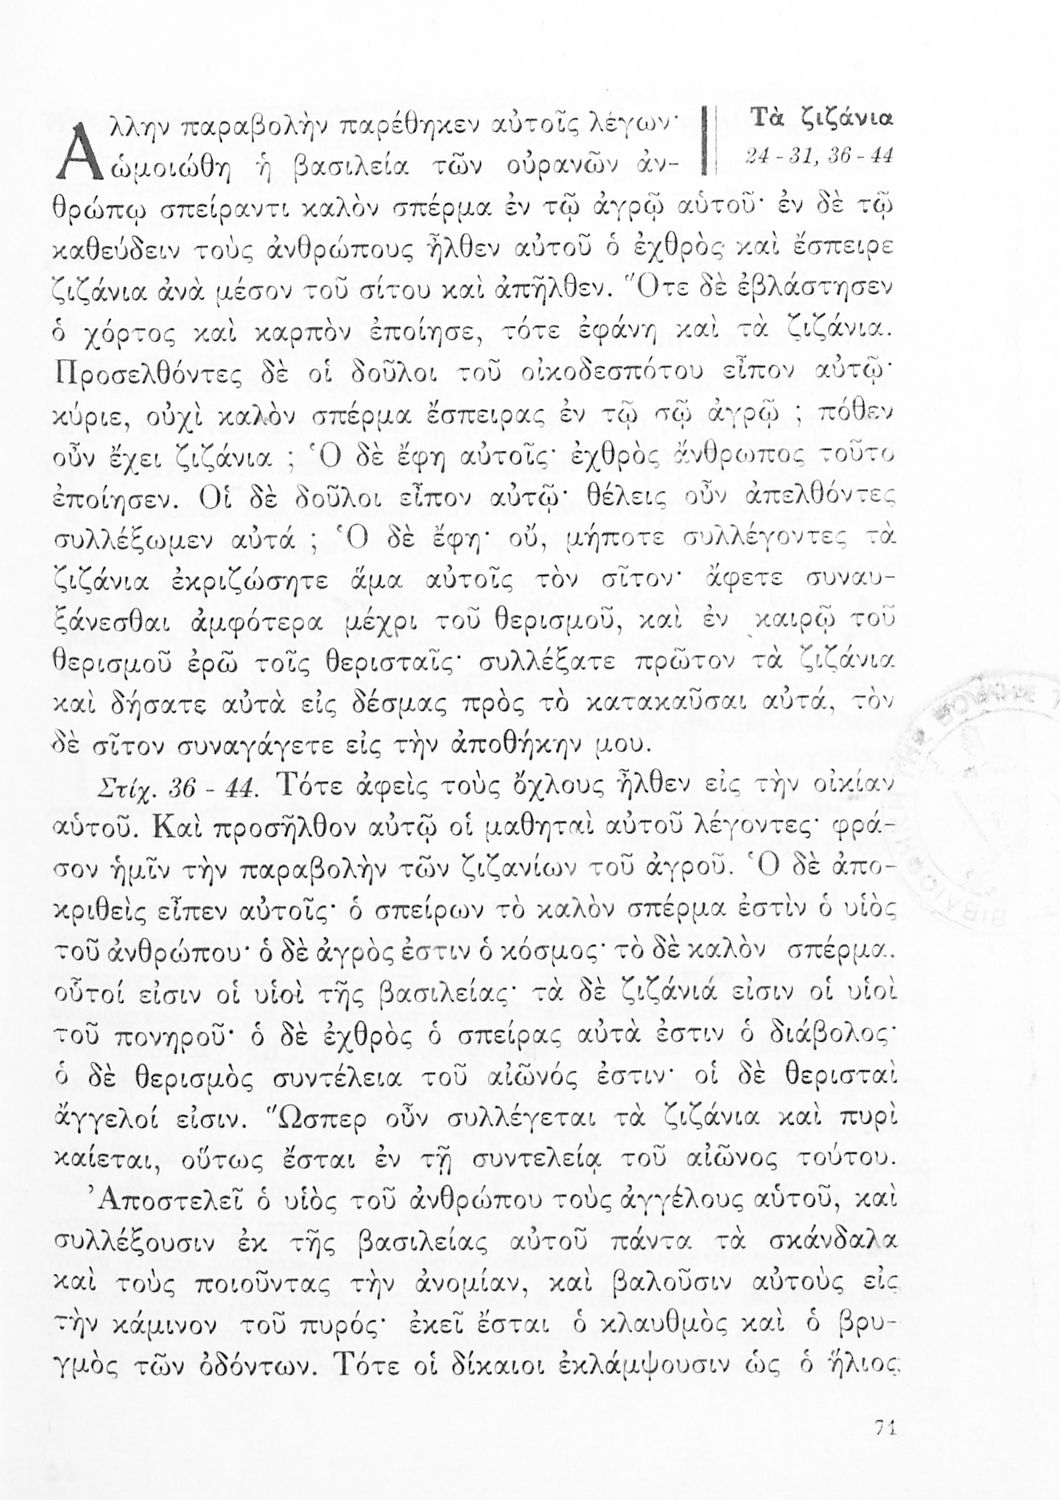 Τὰ ζιζάνια
24 - 31, 36 - 44
Αλλην παραβολὴν παρέθηκεν αὐτοῖς λέγων·
ὡμοιώθη ἡ βασιλεία τῶν οὐρανῶν ἀν-
θρώπῳ σπείραντι καλὸν σπέρμα ἐν τῷ ἀγρῷ αὑτοῦ· ἐν δὲ τῷ
καθεύδειν τοὺς ἀνθρώπους ἦλθεν αὐτοῦ ὁ ἐχθρὸς καὶ ἔσπειρε
ζιζάνια ἀνὰ μέσον τοῦ σίτου καὶ ἀπῆλθεν. Ὅτε δὲ ἐβλάστησεν
ὁ χόρτος καὶ καρπὸν ἐποίησε, τότε ἐφάνη καὶ τὰ ζιζάνια.
Προσελθόντες δὲ οἱ δοῦλοι τοῦ οἰκοδεσπότου εἶπον αὐτῷ·
κύριε, οὐχὶ καλὸν σπέρμα ἔσπειρας ἐν τῷ σῷ ἀγρῷ ; πόθεν
οὖν ἔχει ζιζάνια ; Ὁ δὲ ἔφη αὐτοῖς· ἐχθρὸς ἄνθρωπος τοῦτο
ἐποίησεν. Οἱ δὲ δοῦλοι εἶπον αὐτῷ· θέλεις οὖν ἀπελθόντες
συλλέξωμεν αὐτά ; Ὁ δὲ ἔφη· οὔ, μήποτε συλλέγοντες τὰ
ζιζάνια ἐκριζώσητε ἅμα αὐτοῖς τὸν σῖτον· ἄφετε συναυ-
ξάνεσθαι ἀμφότερα μέχρι τοῦ θερισμοῦ, καὶ ἐν καιρῷ τοῦ
θερισμοῦ ἐρῶ τοῖς θερισταῖς· συλλέξατε πρῶτον τὰ ζιζάνια
καὶ δήσατε αὐτὰ εἰς δέσμας πρὸς τὸ κατακαῦσαι αὐτά, τὸν
δὲ σῖτον συναγάγετε εἰς τὴν ἀποθήκην μου.
Στίχ. 36 - 44. Τότε ἀφεὶς τοὺς ὄχλους ἦλθεν εἰς τὴν οἰκίαν
αὑτοῦ. Καὶ προσῆλθον αὐτῷ οἱ μαθηταὶ αὐτοῦ λέγοντες· φρά-
σον ἡμῖν τὴν παραβολὴν τῶν ζιζανίων τοῦ ἀγροῦ. Ὁ δὲ ἀπο-
κριθεὶς εἶπεν αὐτοῖς· ὁ σπείρων τὸ καλὸν σπέρμα ἐστὶν ὁ υἱὸς
τοῦ ἀνθρώπου· ὁ δὲ ἀγρὸς ἐστιν ὁ κόσμος· τὸ δὲ καλὸν σπέρμα.
οὗτοί εἰσιν οἱ υἱοὶ τῆς βασιλείας· τὰ δὲ ζιζάνιά εἰσιν οἱ υἱοὶ
τοῦ πονηροῦ· ὁ δὲ ἐχθρὸς ὁ σπείρας αὐτὰ ἐστιν ὁ διάβολος·
ὁ δὲ θερισμὸς συντέλεια τοῦ αἰῶνός ἐστιν· οἱ δὲ θερισταὶ
ἄγγελοί εἰσιν. Ὥσπερ οὖν συλλέγεται τὰ ζιζάνια καὶ πυρὶ
καίεται, οὕτως ἔσται ἐν τῇ συντελείᾳ τοῦ αἰῶνος τούτου.
Ἀποστελεῖ ὁ υἱὸς τοῦ ἀνθρώπου τοὺς ἀγγέλους αὑτοῦ, καὶ
συλλέξουσιν ἐκ τῆς βασιλείας αὐτοῦ πάντα τὰ σκάνδαλα
καὶ τοὺς ποιοῦντας τὴν ἀνομίαν, καὶ βαλοῦσιν αὐτοὺς εἰς
τὴν κάμινον τοῦ πυρός· ἐκεῖ ἔσται ὁ κλαυθμὸς καὶ ὁ βρυ-
γμὸς τῶν ὀδόντων. Τότε οἱ δίκαιοι ἐκλάμψουσιν ὡς ὁ ἥλιος
71